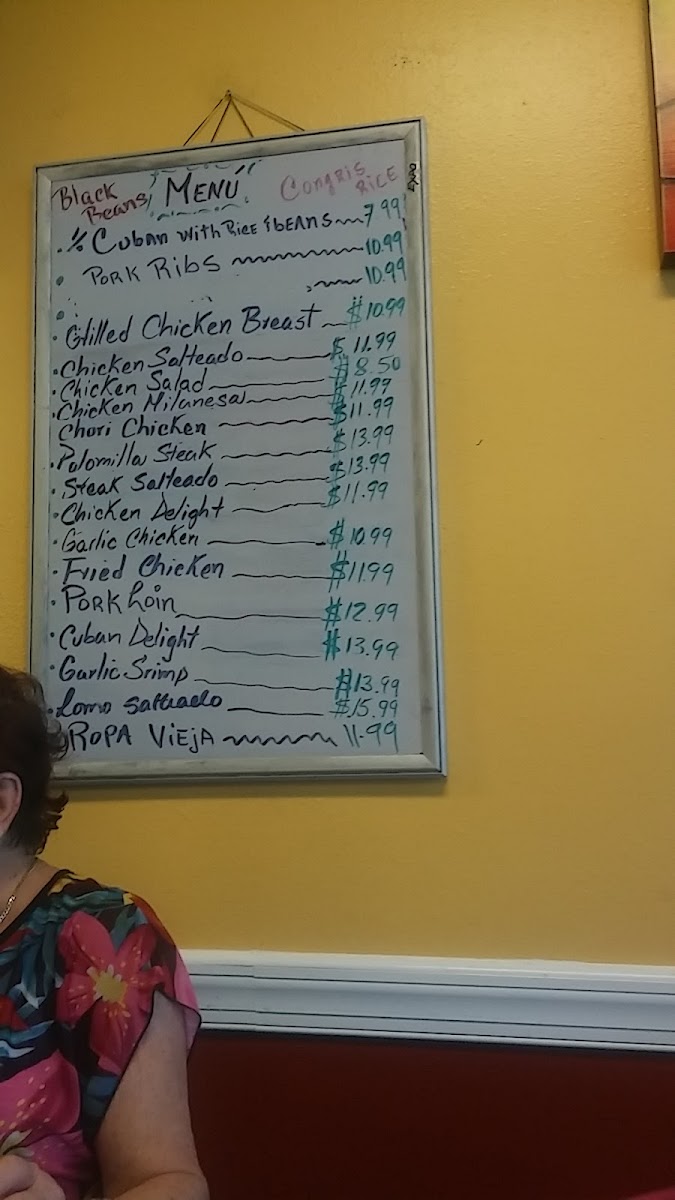 Black Beans MENÚ Congris RICE
½ Cuban with Rice & bEANS 7.99
PORK RIBS 10.99
10.99
Grilled Chicken Breast $10.99
Chicken Salteado $11.99
Chicken Salad $8.50
Chicken Milanesa $11.99
Chori Chicken $11.99
Palomilla Steak $13.99
Steak Salteado $13.99
Chicken Delight $11.99
Garlic Chicken $10.99
Fried Chicken $11.99
PORK Loin $12.99
Cuban Delight $13.99
Garlic Srimp $13.99
Lomo Salteado $15.99
ROPA ViEjA 11.99